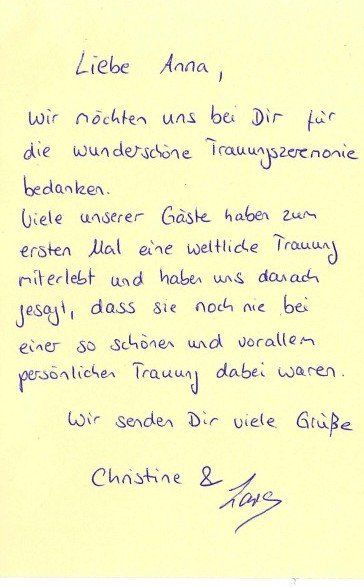 Liebe Anna,
Wir möchten uns bei Dir für
die wunderschöne Trauungszeremonie
bedanken.
Viele unserer Gäste haben zum
ersten Mal eine weltliche Trauung
miterlebt und haben uns danach
gesagt, dass sie noch nie bei
einer so schönen und vorallem
persönlichen Trauung dabei waren.
Wir senden Dir viele Grüße
Christine &